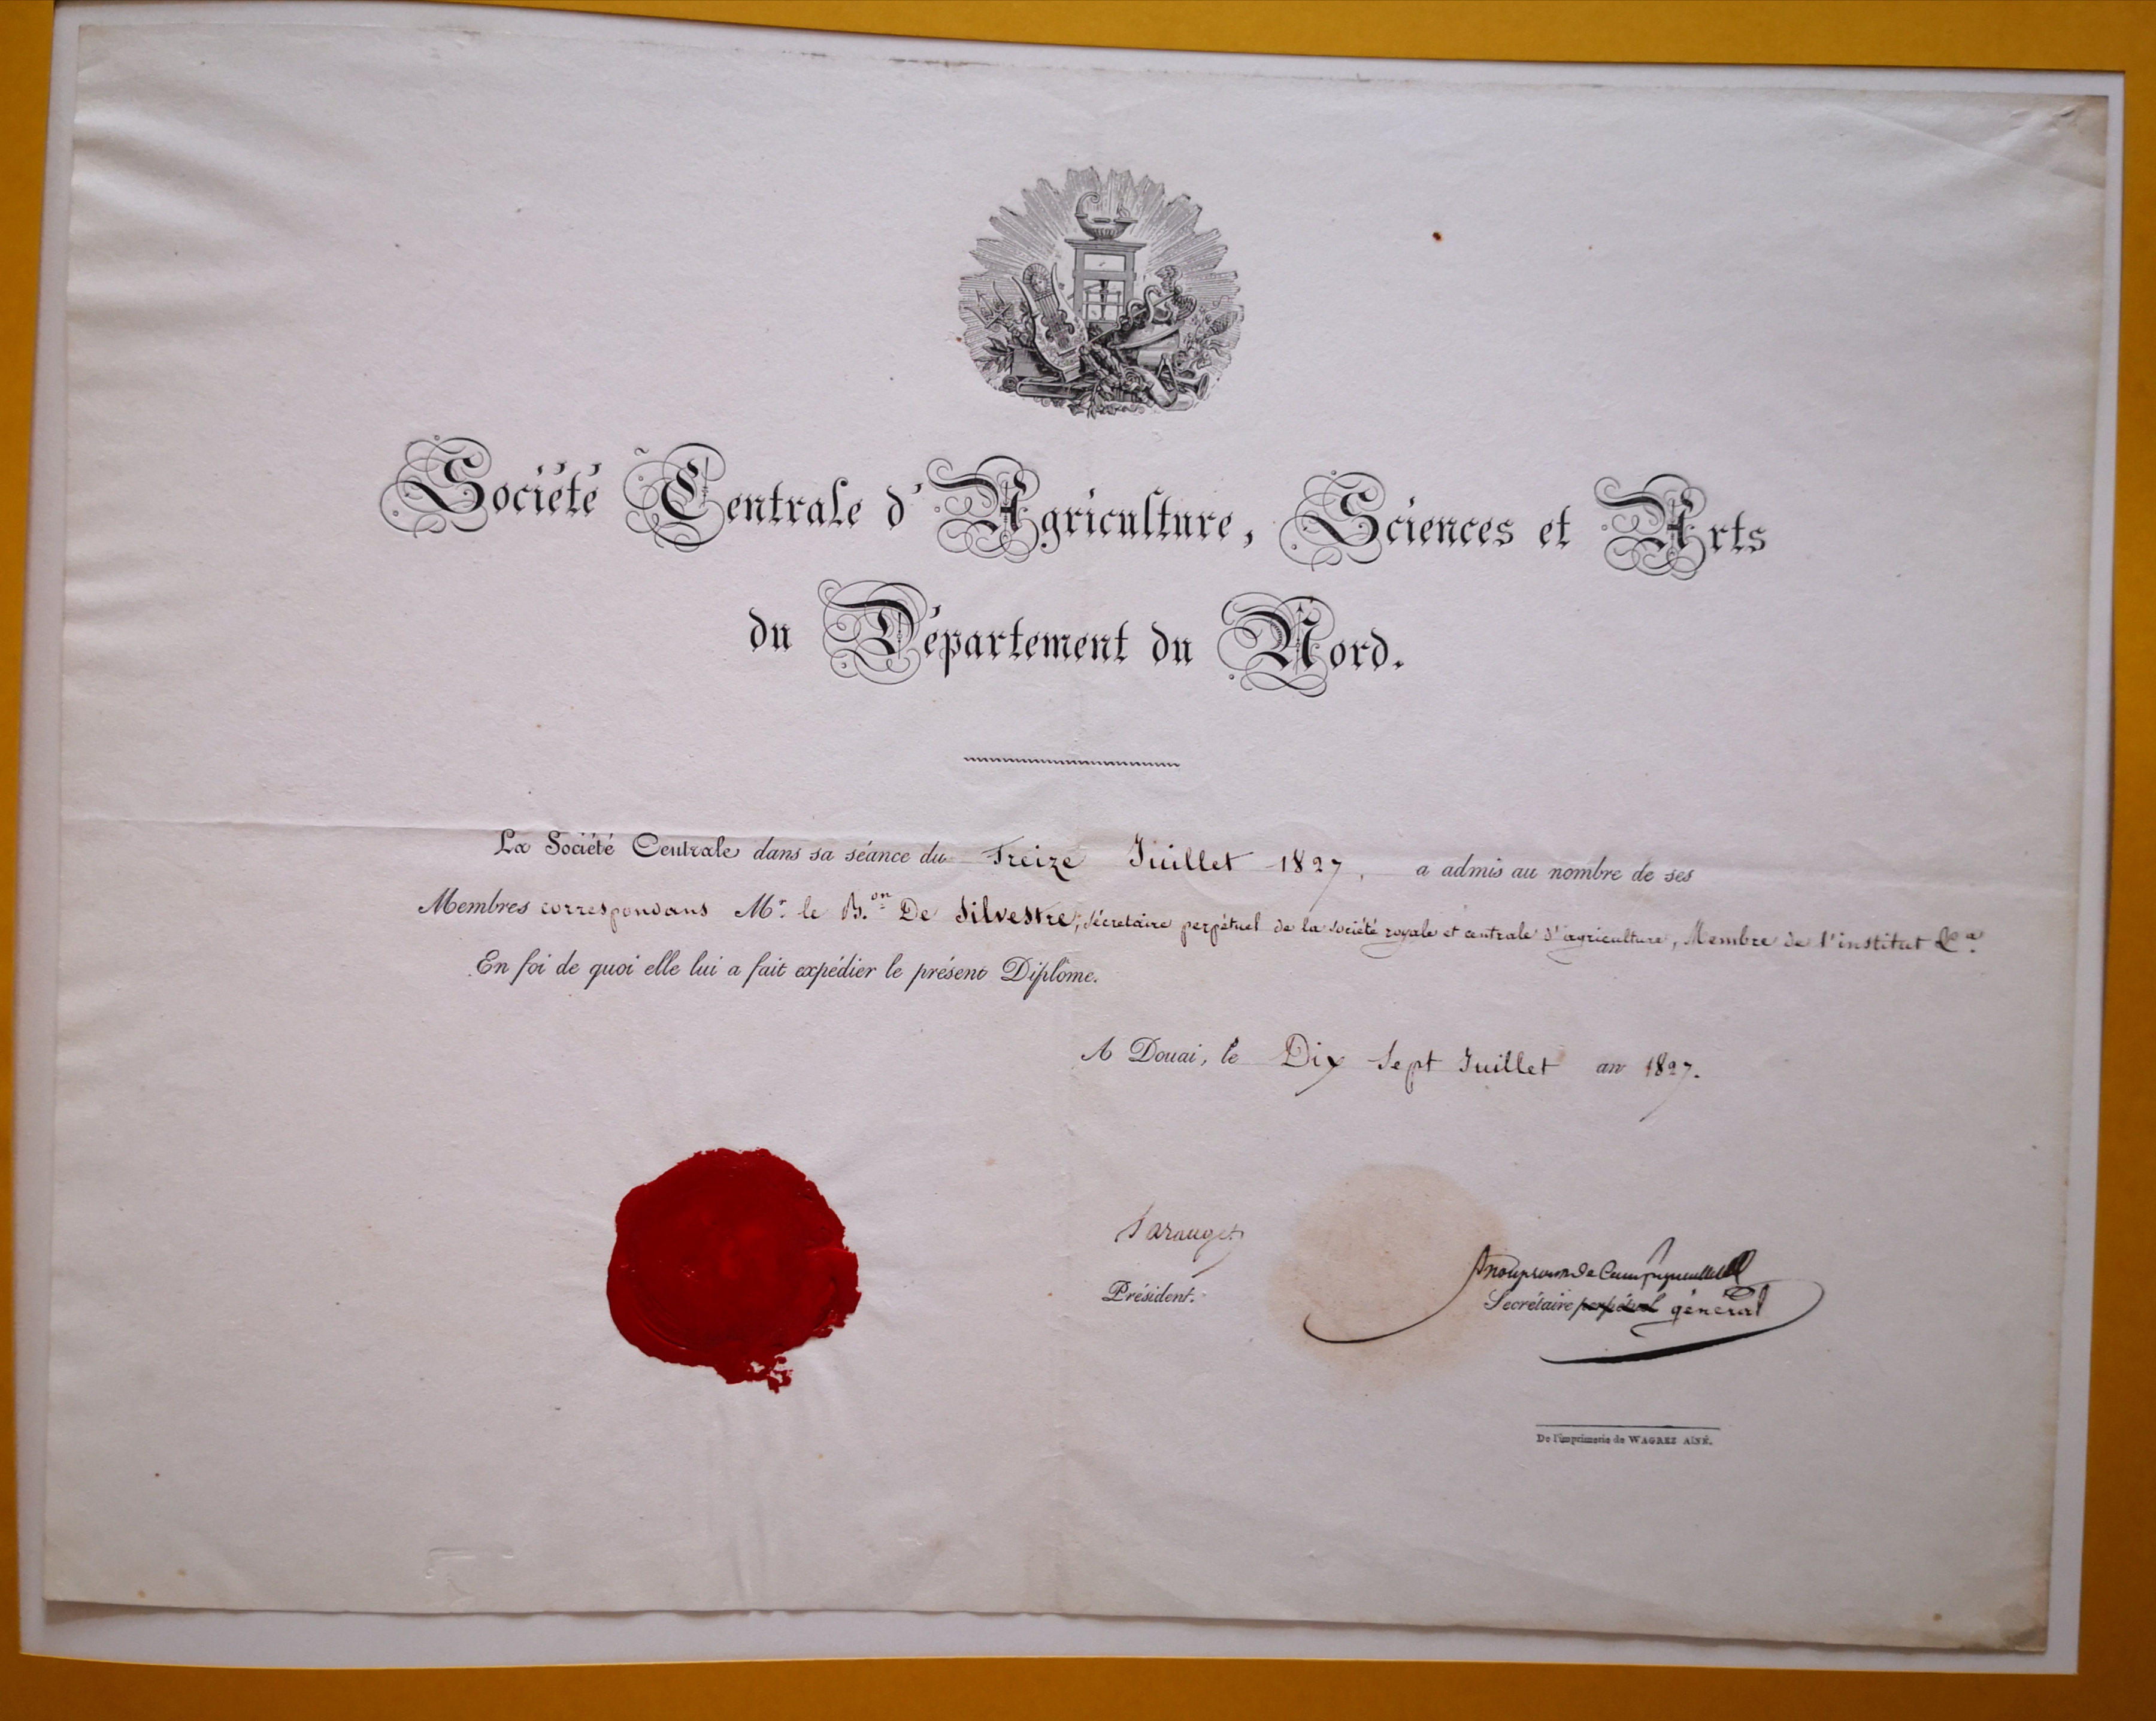 Société Centrale d'Agriculture, Sciences et Arts
du Département du Nord.
La Société Centrale dans sa séance du Treize Juillet 1827, a admis au nombre de ses
Membres correspondans Mr. le B.on De Silvestre, sécretaire perpétuel de la société royale et centrale d'agriculture, Membre de l'institut &a.
En foi de quoi elle lui a fait expédier le présent Diplôme.
A Douai, le Dix Sept Juillet an 1827.
Président.
Secrétaire perpétuel général
De l'imprimerie de WAGREZ AÎNÉ.